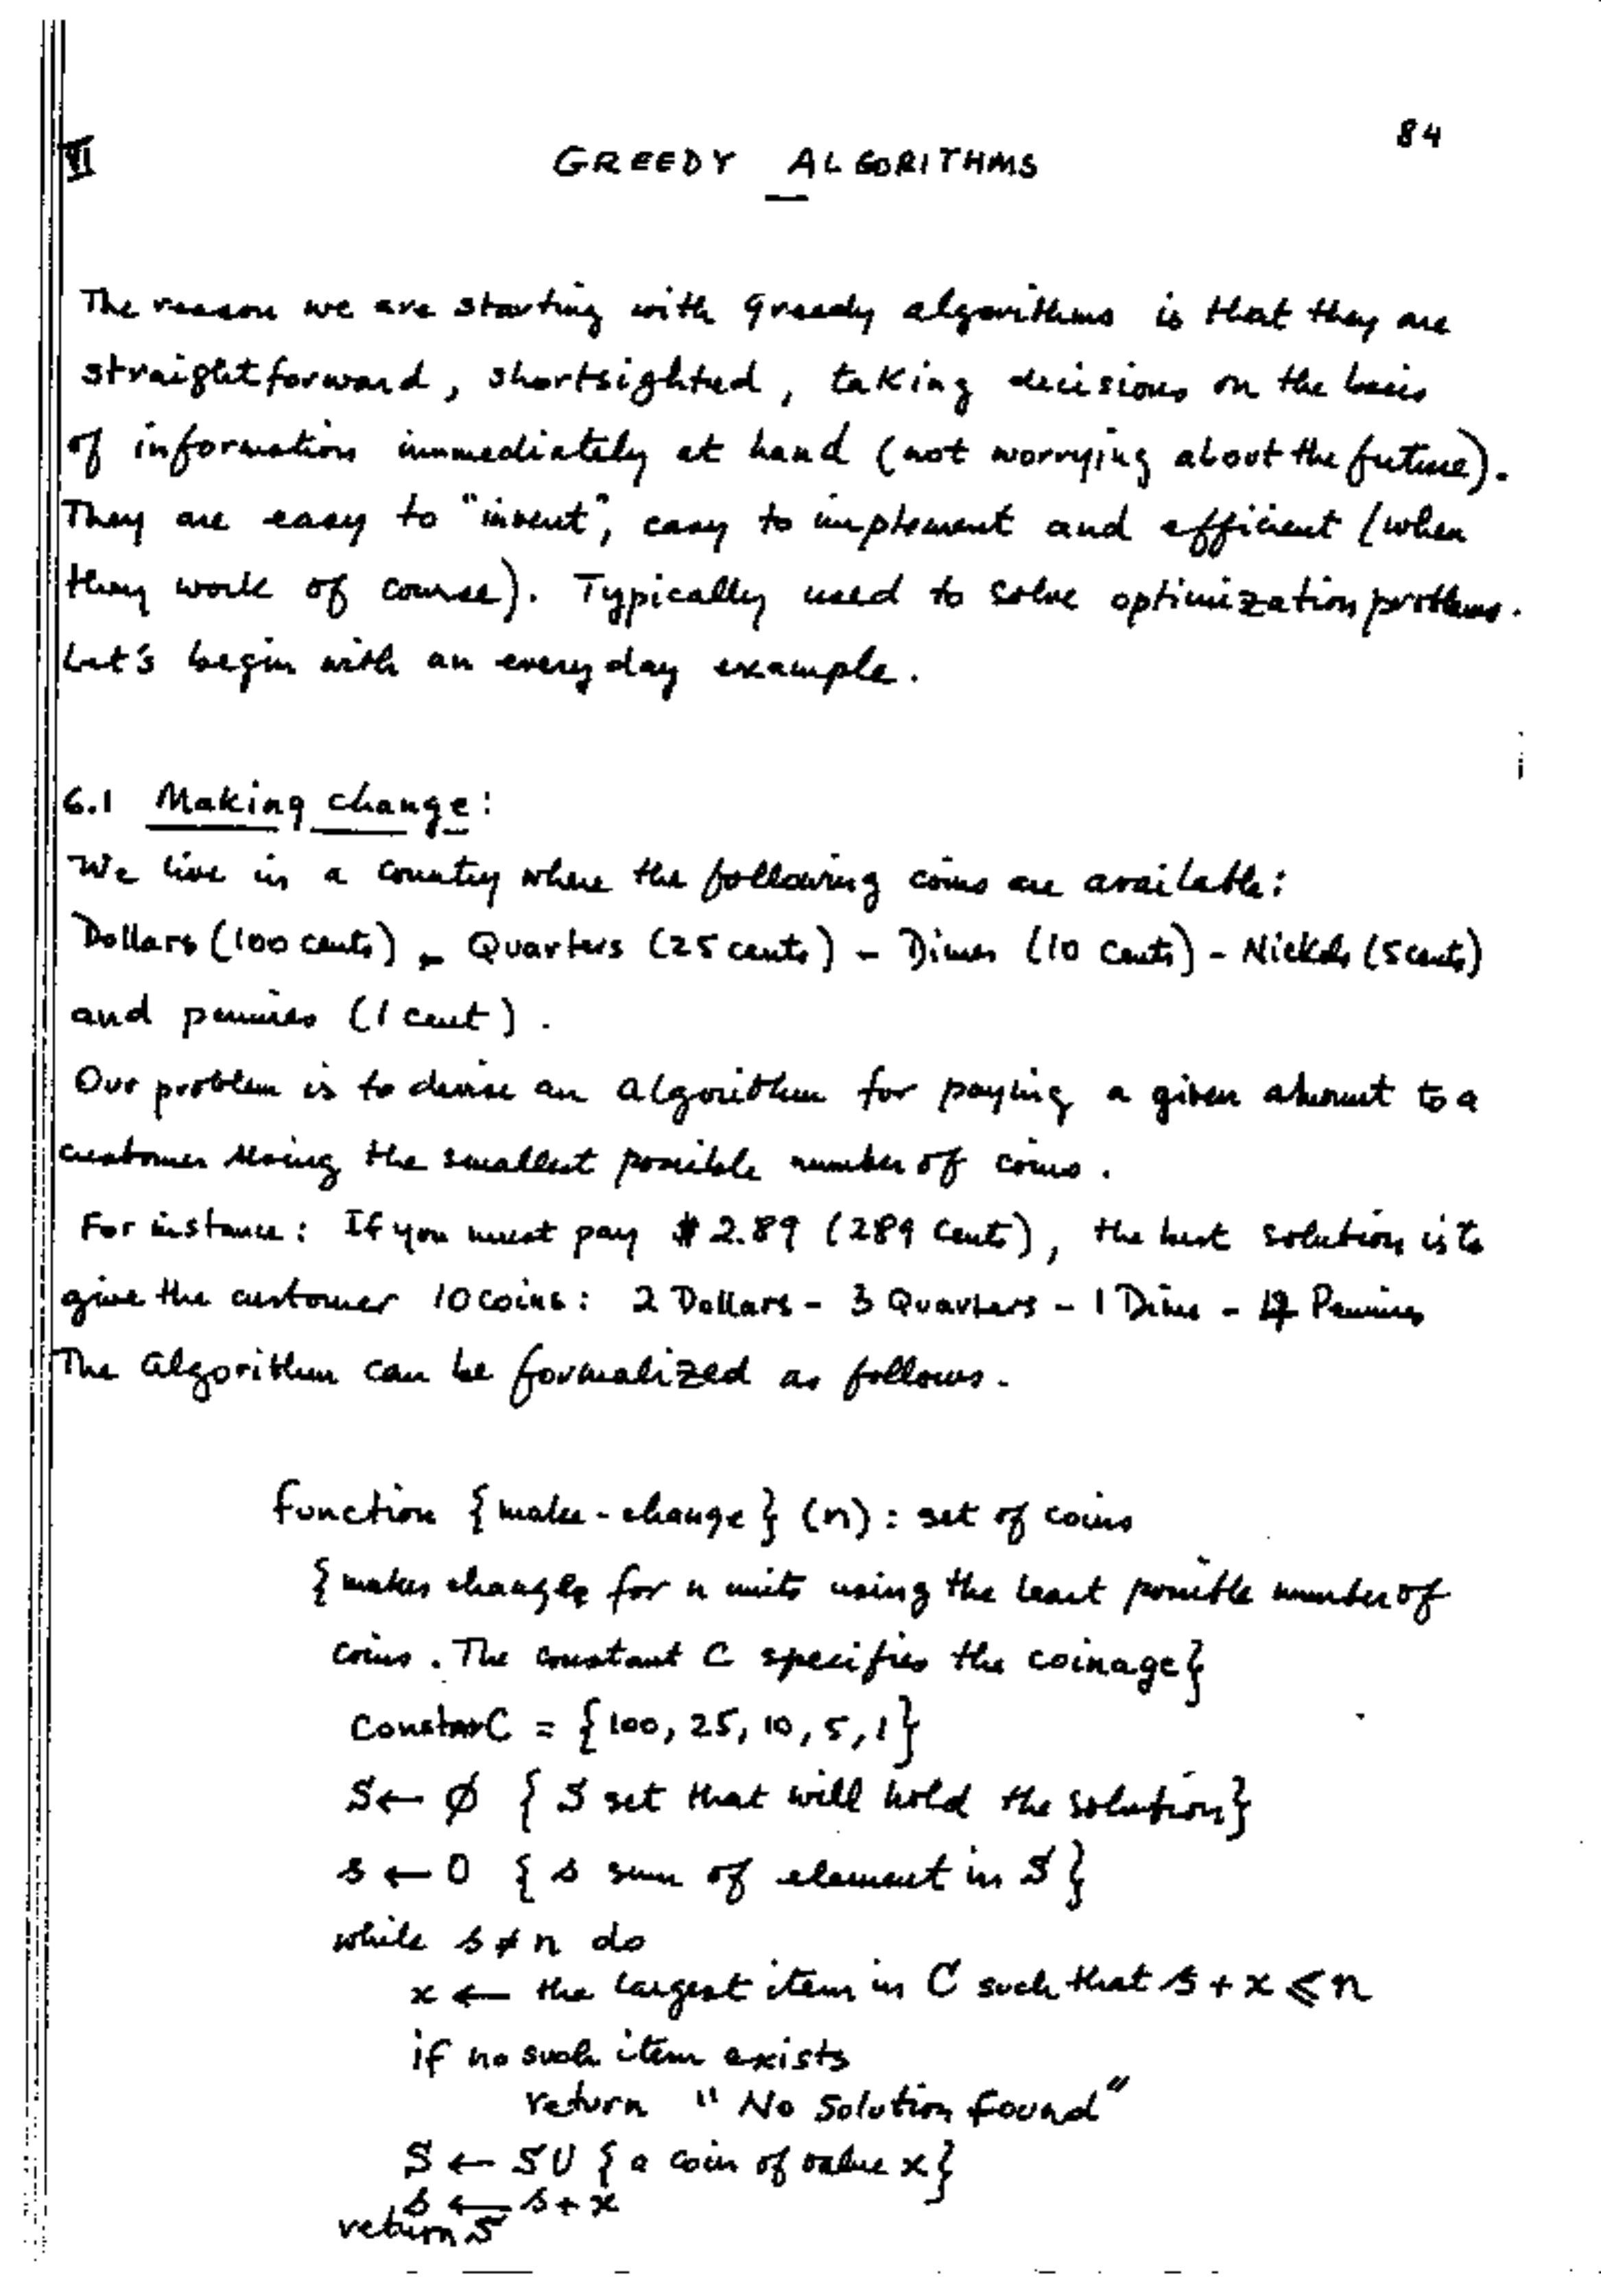 84
VI GREEDY ALGORITHMS
The reason we are starting with greedy algorithms is that they are
straightforward, shortsighted, taking decisions on the basis
of information immediately at hand (not worrying about the future).
They are easy to "invent", easy to implement and efficient (when
they work of course). Typically used to solve optimization problems.
Let's begin with an every day example.
6.1 Making change:
We live in a country where the following coins are available:
Dollars (100 cents) - Quarters (25 cents) - Dimes (10 cents) - Nickels (5 cents)
and pennies (1 cent).
Our problem is to devise an algorithm for paying a given amount to a
customer using the smallest possible number of coins.
For instance: If you must pay $ 2.89 (289 cents), the best solution is to
give the customer 10 coins: 2 Dollars - 3 Quarters - 1 Dime - 4 Pennies
The algorithm can be formalized as follows.
function {make-change} (n): set of coins
{makes change for n units using the least possible number of
coins. The constant C specifies the coinage}
C = {100, 25, 10, 5, 1}
S ← ∅ { S set that will hold the solution}
s ← 0 { s sum of element in S }
while s ≠ n do
x ← the largest item in C such that s + x ≤ n
if no such item exists
return "No Solution found"
S ← S U {a coin of value x}
s ← s + x
return S